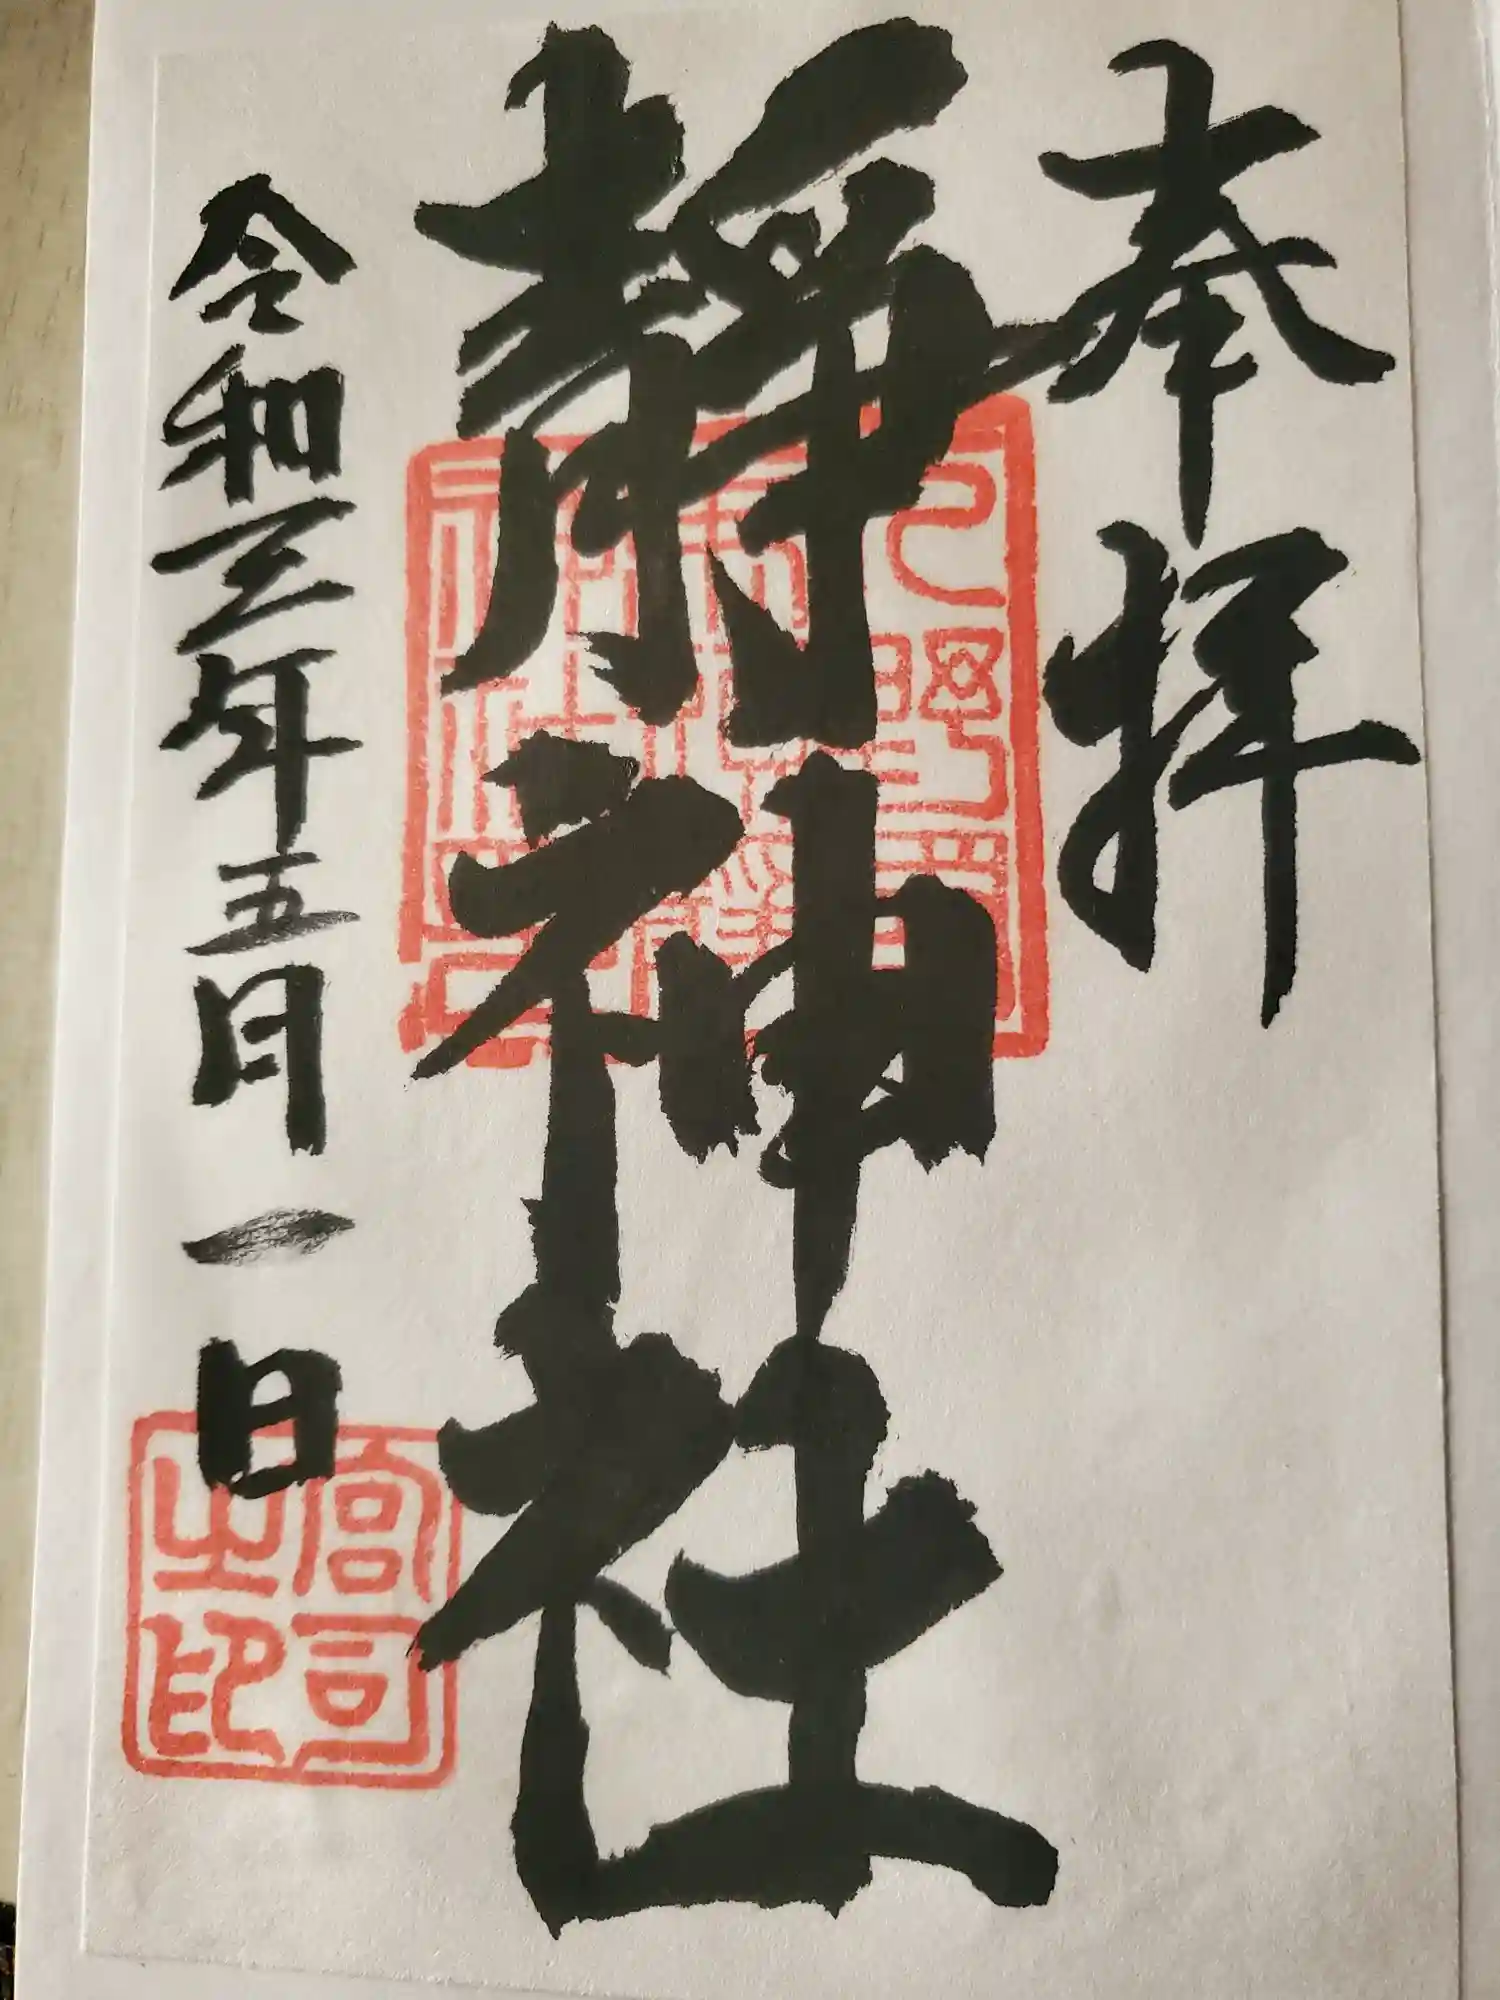 奉拝
靜神社
令和三年五月一日
宮司
之印